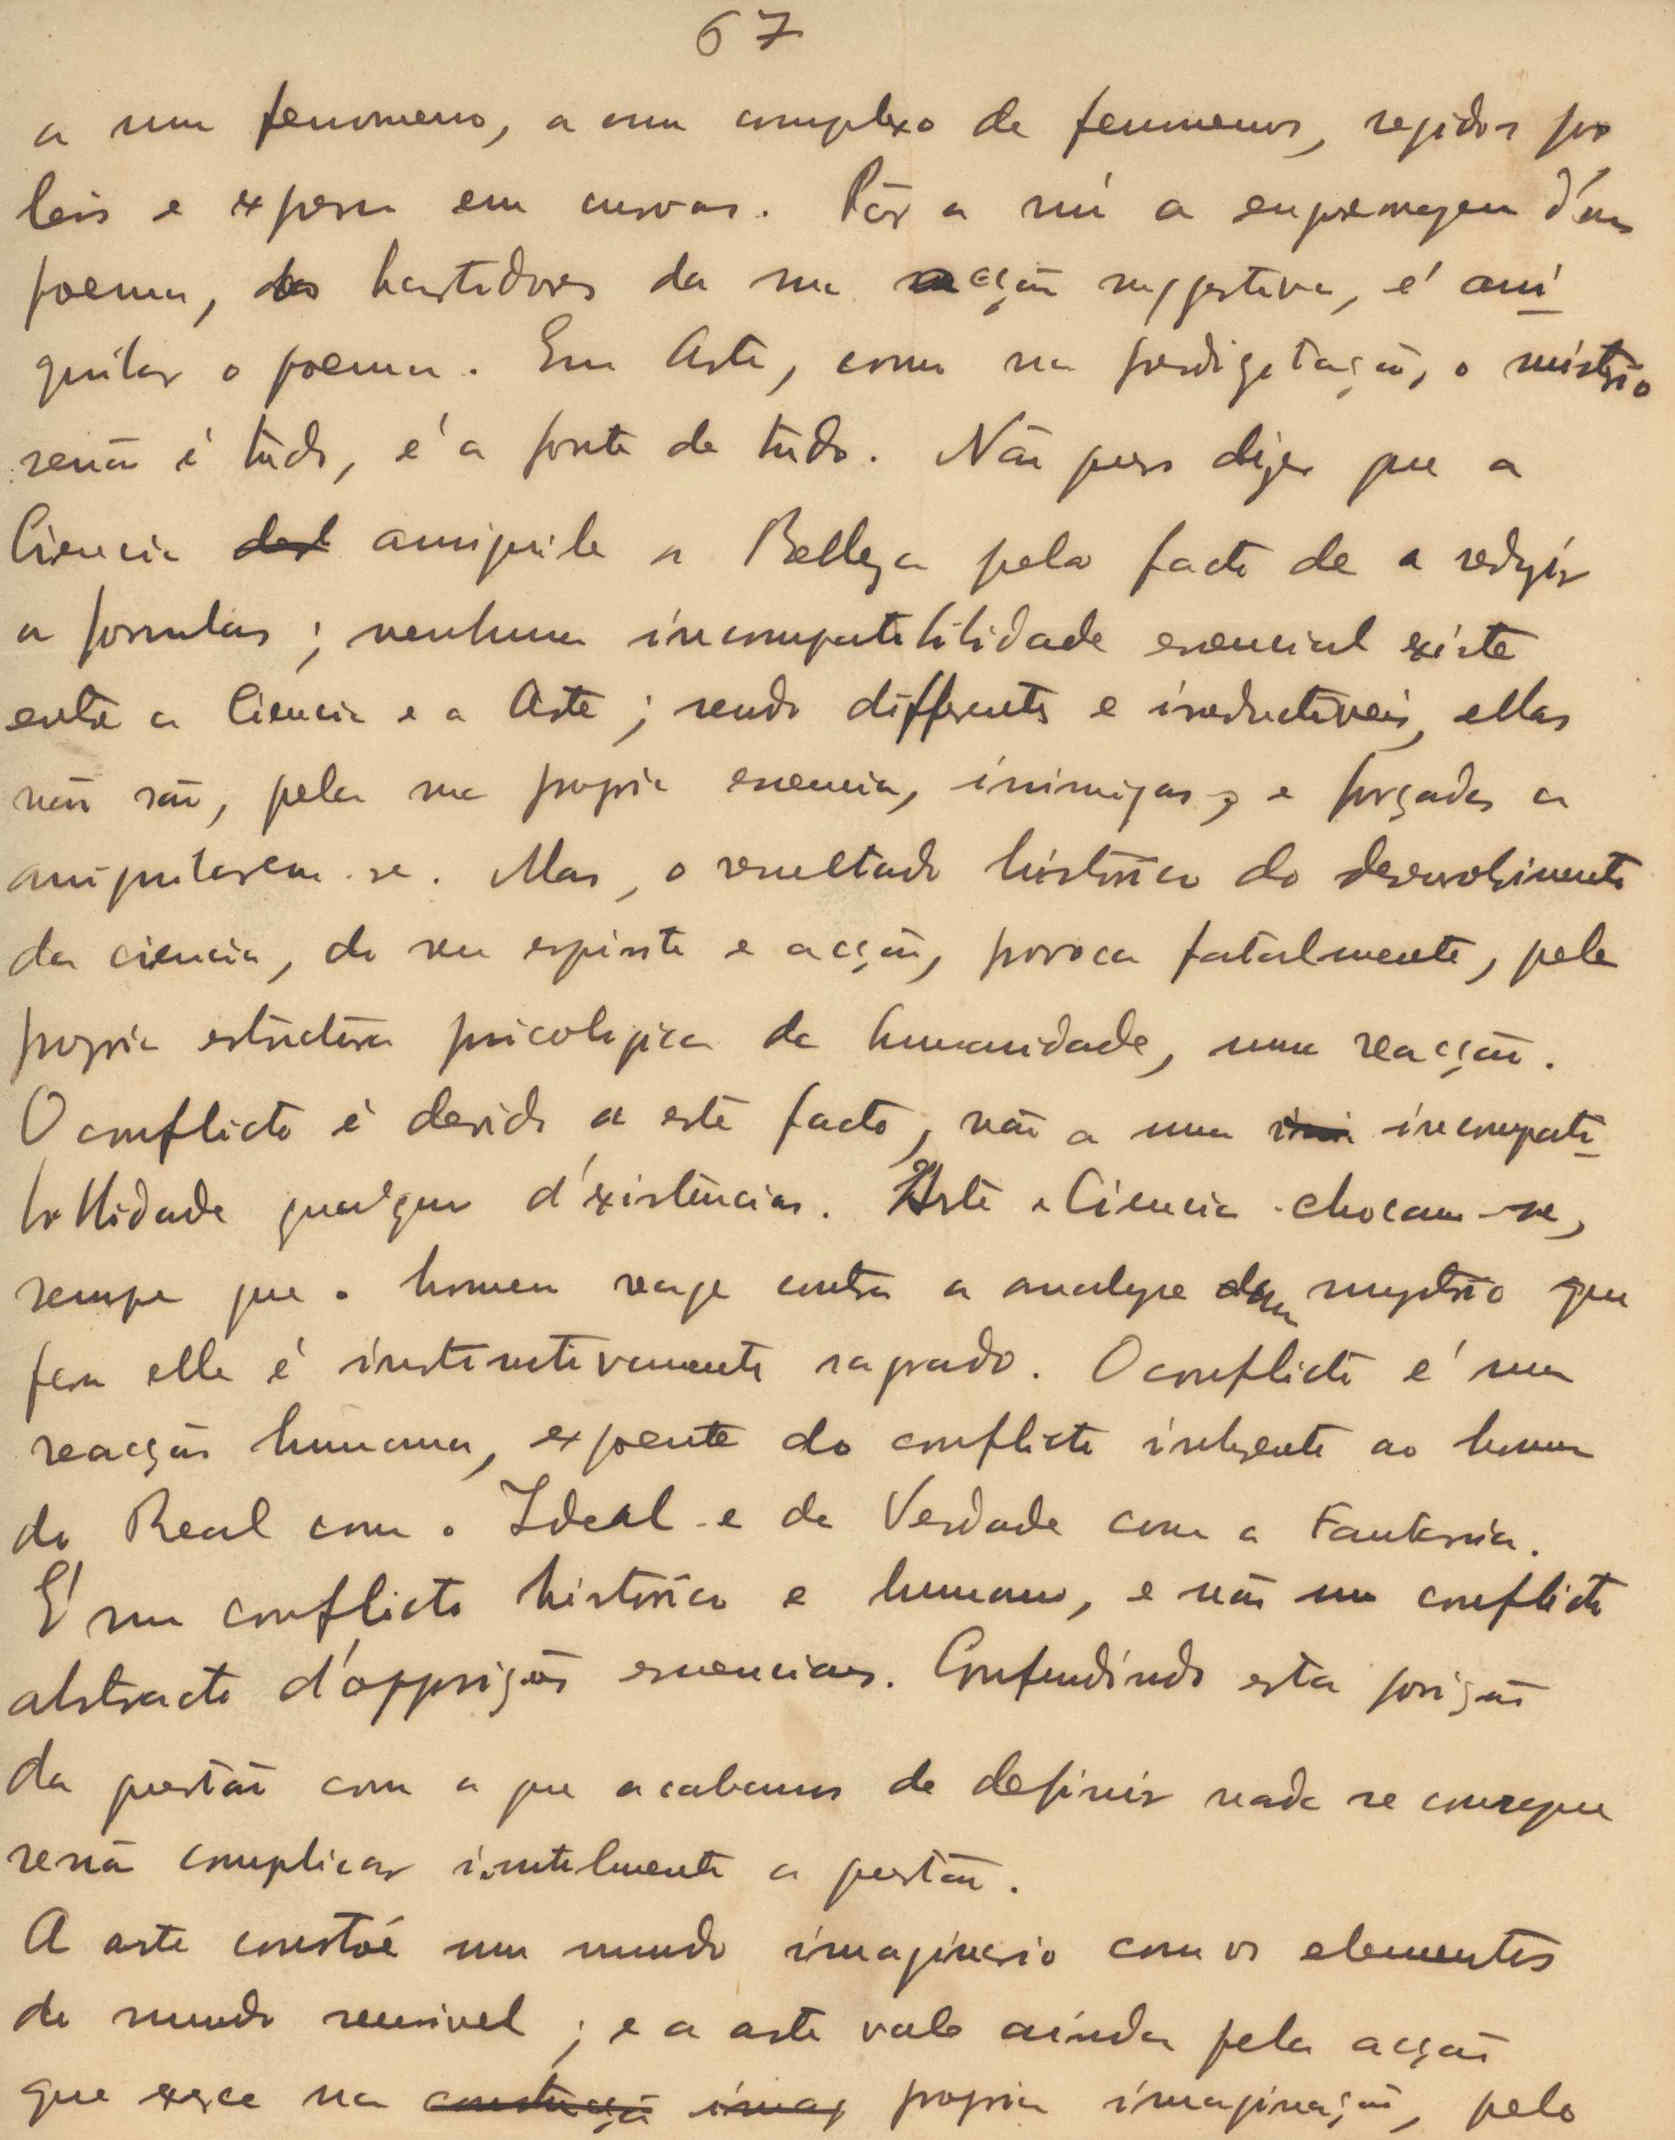 67
a um fenomeno, a um complexo de fenomenos, regidos por
leis e expressos em curvas. Pôr a nú a engrenagem d'um
poema, os bastidores da sua acção suggestiva, é ani-
quilar o poema. Em Arte, como na prestidigitação, o mistério
senão é tudo, é a fonte de tudo. Não quero dizer que a
Ciencia aniquile a Belleza pelo facto de a reduzir
a formulas; nenhuma incompatibilidade essencial existe
entre a Ciencia e a Arte; sendo differentes e irreductiveis, ellas
não são, pela sua propria essencia, inimigas, e forçadas a
aniquilarem-se. Mas, o resultado histórico do desenvolvimento
da ciencia, do seu espirito e acção, provoca fatalmente, pela
propria estructura psicologica da humanidade, uma reacção.
O conflicto é devido a este facto, não a uma incompati-
bilidade qualquer d'existências. Arte e Ciencia chocam-se,
sempre que o homem reage contra a analyse d'um mysterio que
para elle é instinctivamente sagrado. O conflicto é uma
reacção humana, expoente do conflicto inherente ao homem
do Real com o Ideal e da Verdade com a Fantasia.
É um conflicto histórico e humano, e não um conflicto
abstracto d'opposições essenciaes. Confundindo esta posição
da questão com a que acabamos de definir nada se consegue
senão complicar inutilmente a questão.
A arte constróe um mundo imaginario com os elementos
do mundo sensivel; e a arte vale ainda pela acção
que exerce na propria imaginação, pelo